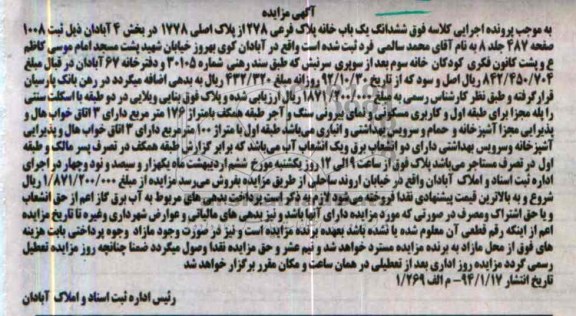 آگهی مزایده
به موجب پرونده اجرایی کلاسه فوق ششدانگ یک باب خانه پلاک فرعی ۲۷۸ از پلاک اصلی ۱۷۷۸ در بخش ۴ آبادان ذیل ثبت ۱۰۰۸
صفحه ۴۸۷ جلد ۸ به نام آقای محمد سالمی فرد ثبت شده است واقع در آبادان کوی بهروز خیابان شهید پشت مسجد امام موسی کاظم
ع و پشت کانون فکری کودکان خانه سوم بعد از سوپری سرنیش که طبق سند رهنی شماره ۳۰۱۰۵ و دفترخانه ۶۷ آبادان در قبال مبلغ
۸۴۲/۴۵۰/۷۰۴ ریال اصل و سود که از تاریخ ۹۲/۱۰/۳۰ روزانه مبلغ ۴۳۲/۳۲۰ ریال به بدهی اضافه میگردد در رهن بانک پارسیان
قرار گرفته و طبق نظر کارشناس رسمی به مبلغ ریال ارزیابی شده و پلاک فوق بنایی ویلایی در دو طبقه با اسکلت سنتی
با راه پله مجزا برای طبقه اول و کاربری مسکونی و نمای بیرونی سنگ و آجر طبقه همکف بامتراژ ۱۷۶ متر مربع دارای ۳ اتاق خواب هال و
پذیرایی مجزا آشپزخانه و حمام و سرویس بهداشتی و انباری می‌باشد طبقه اول با متراژ ۱۰۰ مترمربع دارای ۳ اتاق خواب هال و پذیرایی
آشپزخانه وسرویس بهداشتی دارای دو انشعاب برق ویک انشعاب آب می‌باشد که برابر گزارش طبقه همکف در تصرف پسر مالک و طبقه
اول در تصرف مستاجر می‌باشد پلاک فوق از ساعت ۹ الی ۱۲ روز یکشنبه مورخ ششم اردیبهشت ماه یکهزار و سیصد و نود وچهار در اجرای
اداره ثبت اسناد و املاک آبادان واقع در خیابان اروند ساحلی از طریق مزایده بفروش می‌رسد مزایده از مبلغ ۱/۸۷۱/۲۰۰/۰۰۰ ریال
شروع و به بالاترین قیمت پیشنهادی نقدا فروخته می‌شود لازم به ذکر است پرداخت بدهی های مربوط به آب برق گاز اعم از حق انشعاب
و یا حق اشتراک ومصرف در صورتی که مورد مزایده دارای آنها باشد و نیز بدهی های مالیاتی و عوارض شهرداری وغیره تا تاریخ مزایده
اعم از اینکه رقم قطعی آن معلوم شده یا نشده باشد بعهده برنده مزایده است و نیز در صورت وجود مازاد وجوه پرداختی بابت هزینه
های فوق از محل مازاد به برنده مزایده مسترد خواهد شد و نیم عشر و حق مزایده نقدا وصول میگردد ضمنا چنانچه روز مزایده تعطیل
رسمی گردد مزایده روز اداری بعد از تعطیلی در همان ساعت و مکان مقرر برگزار خواهد شد
تاریخ انتشار ۹۴/۱/۱۷- م الف ۱/۲۶۹
رئیس اداره ثبت اسناد و املاک آبادان